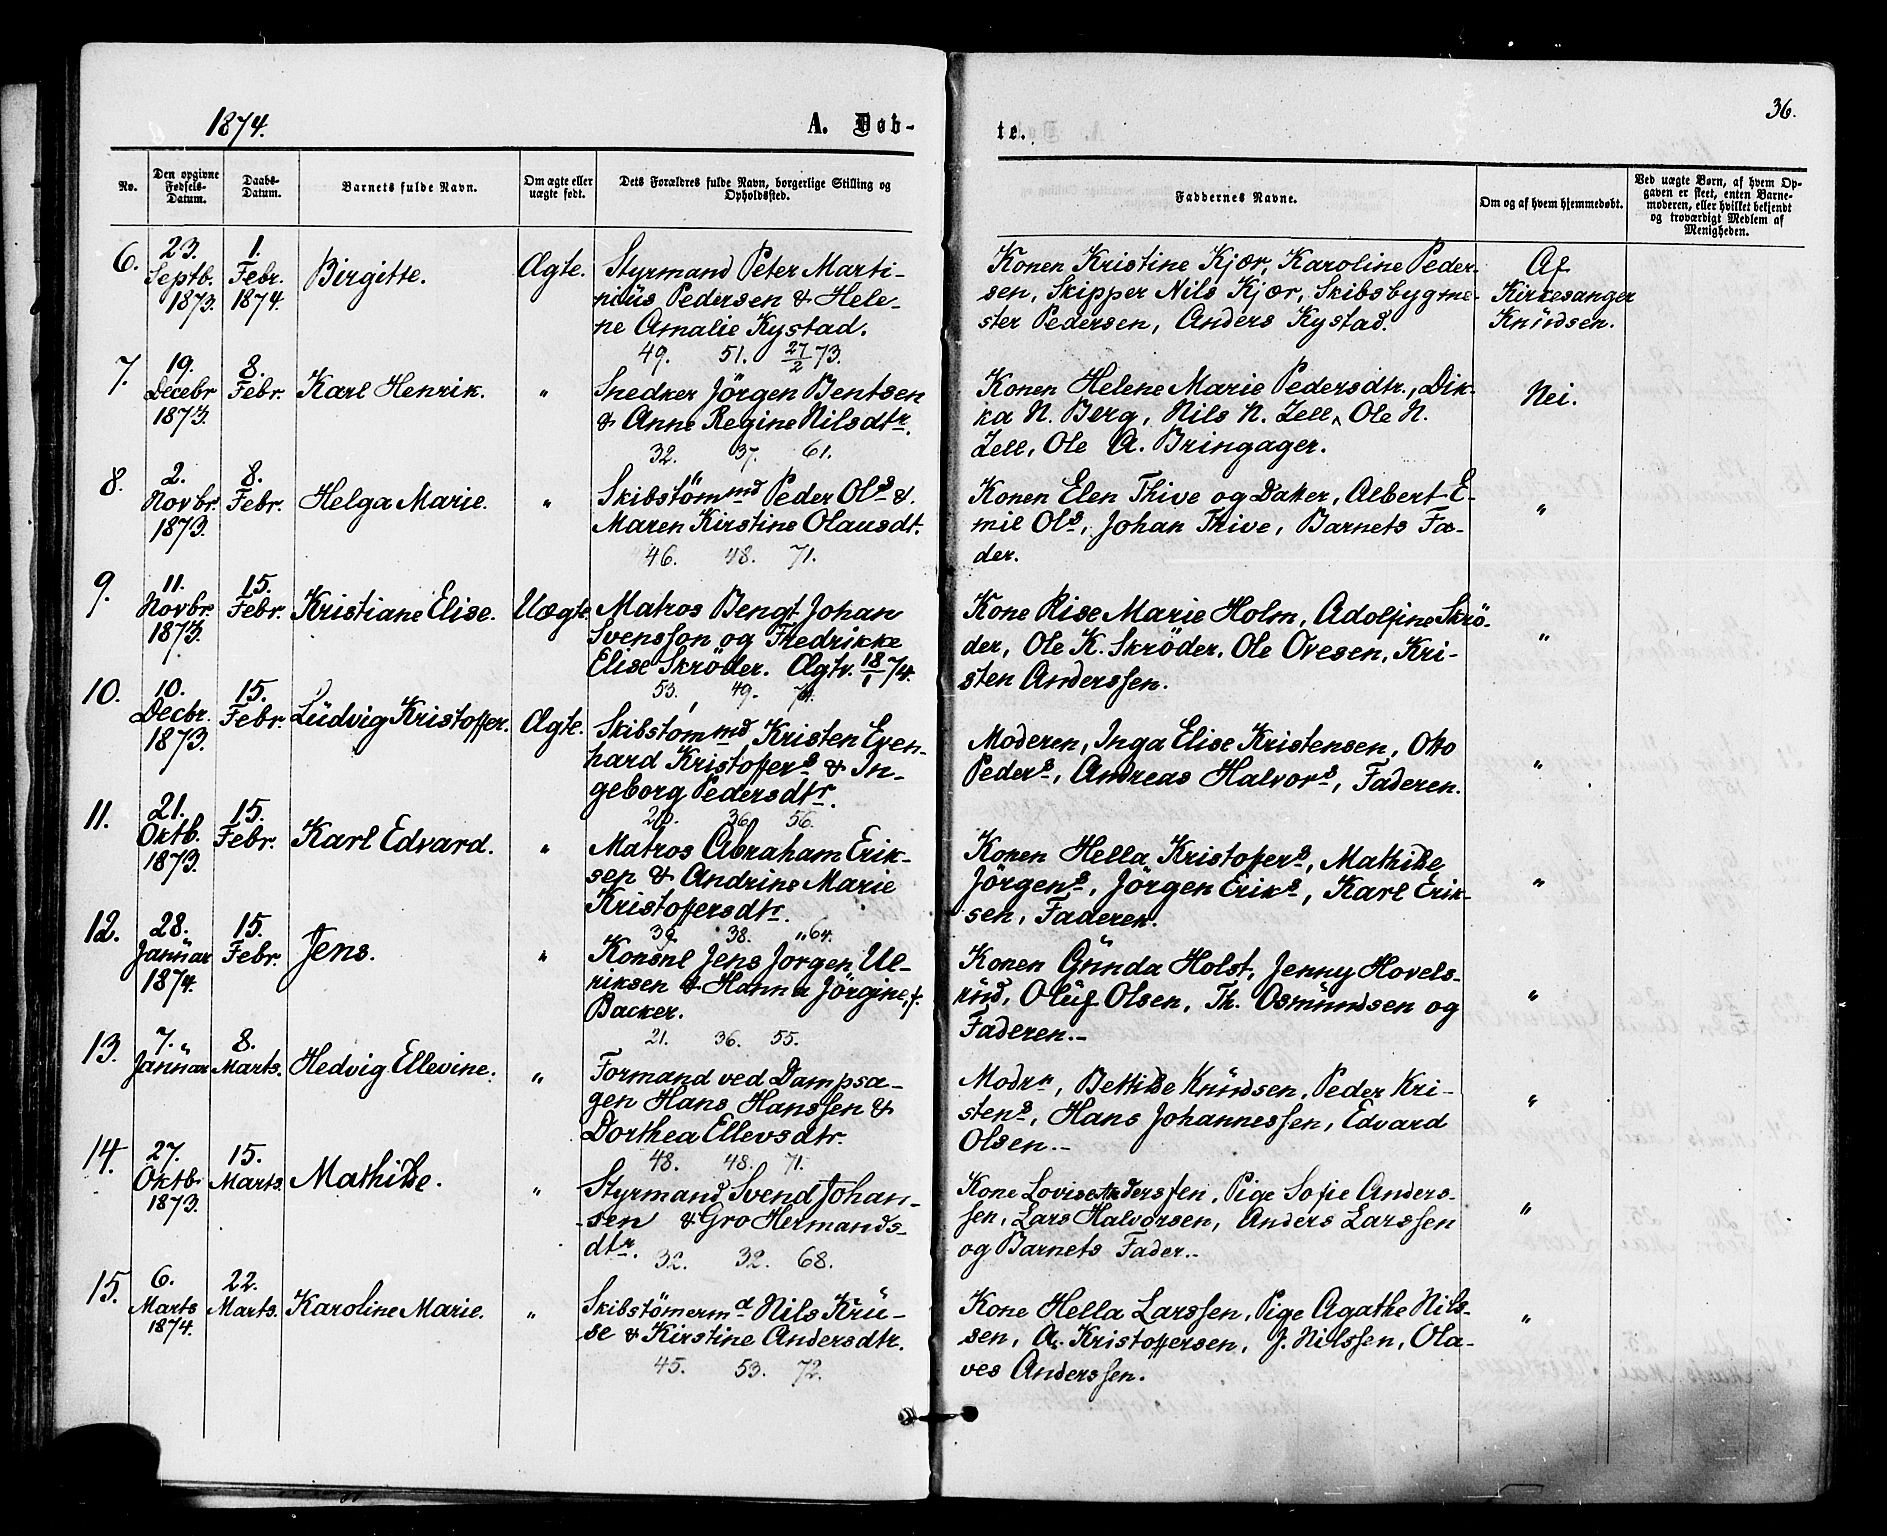 1874.
A. Døb-
te.
36.
No.
Den opgivne
Fødsels-
Datum.
Daabs-
Datum.
Barnets fulde Navn.
Om ægte eller
uægte født.
Dets Forældres fulde Navn, borgerlige Stilling og
Opholdssted.
Faddernes Navne.
Om og af hvem hjemmedøbt.
Ved uægte Børn, af hvem Op-
gaven er skeet, enten Barne-
moderen, eller hvilket bekjendt
og troværdigt Medlem af
Menigheden.
6.
23.
Septb.
1873.
1.
Febr.
1874.
Birgitte.
Ægte.
Styrmand Peter Marti-
nius Pedersen & Hele-
ne Amalie Kystad.
49. 51. 27/2 73.
Konen Kristine Kjær, Karoline Peder-
sen, Skipper Nils Kjær, Skibsbygme-
ster Pedersen, Anders Kystad.
Af
Kirkesanger
Knüdsen.
7.
19.
Decebr
1873.
8.
Febr.
Karl Henrik.
"
Snedker Jörgen Bentsen
& Anne Regine Nilsdtr.
32. 37. 61.
Konen Helene Marie Pedersdtr., Dik-
ka N. Berg, Nils N. Zell, Ole N.
Zell, Ole A. Bringager.
Nei.
8.
2.
Novbr.
1873.
8.
Febr.
Helga Marie.
"
Skibstömmd Peder Ols &
Maren Kirstine Olausdt.
46. 48. 71.
Konen Elen Thive og Daker, Albert E-
mil Ols, Johan Thive, Barnets Fa-
der.
"
9.
11.
Novbr.
1873.
15.
Febr.
Kristiane Elise.
Uægte
Matros Bengt Johan
Svensson og Fredrikke
Elise Skröder. Ægtv. 18/1 74.
53. 49. 74.
Kone Rise Marie Holm, Adolfine Skrö-
der, Ole K. Skröder, Ole Ovesen, Kri-
sten Anderssen.
"
10.
10.
Decbr.
1873.
15.
Febr.
Lüdvig Kristoffer.
Ægte.
Skibstömmd Kristen Even-
hard Kristoffers & In-
geborg Pedersdtr.
36. 56.
Moderen, Inga Elise Kristensen, Oto
Peders, Andreas Halvors, Faderen.
"
11.
21.
Oktb.
1873.
15.
Febr.
Karl Edvard.
"
Matros Abraham Erik-
sen & Andrine Marie
Kristoffersdtr.
39. 38. "64.
Konen Hella Kristofers, Mathilde
Jörgens, Jörgen Eriks, Karl Erik-
sen, Faderen.
"
12.
28.
Janüar
1874.
15.
Febr.
Jens.
"
Konsul Jens Jorgen Ul-
riksen & Hanna Jörgine, f.
Backer.
21. 36. 55.
Konen Günda Holst, Jenny Hovels-
rüd, Olüf Olsen, Th. Osmündsen og
Faderen.-
"
13.
7.
Janüar
8.
Marts.
Hedvig Ellevine.
"
Formand ved Dampsa-
gen Hans Hanssen &
Dorthea Ellevsdtr.
48. 48. 71.
Modrn, Bethilde Knüdsen, Peder Kri-
stens, Hans Johannessen, Edvard
Olsen.-
"
14.
27.
Oktb.
1873.
15.
Marts.
Mathilde.
"
Styrmand Svend Johan-
sen & Gro Hermands-
dtr.
32. 32. 68.
Kone Lovise Anderssen, Pige Sofie Anders-
sen, Lars Halvorsen, Anders Larssen
og Barnets Fader.-
"
15.
6.
Marts
1874.
22.
Marts.
Karoline Marie.
"
Skibstömermd Nils Krü-
se & Kirstine Andersdtr.
45. 53. 72.
Kone Hella Larssen, Pige Agathe Nils-
sen, A. Kristoffersen, J. Nilssen, Ola-
ves Anderssen.
"